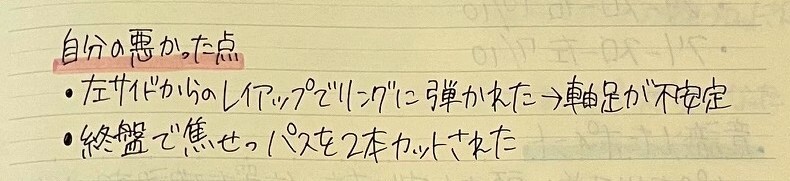 自分の悪かった点
・左サイドからのレイアップでリングに弾かれた→軸足が不安定
・終盤で焦せっパスを2本カットされた